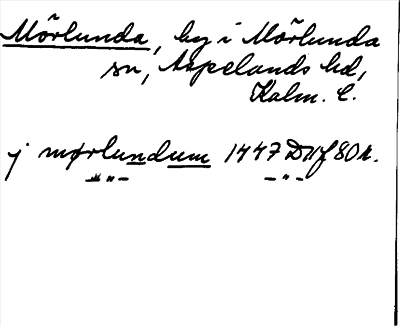 Mörlunda, by i Mörlunda
sn, Aspelands hd,
Kalm. l.
j mørlundum 1447 DMf 80 r.
—"— —"—